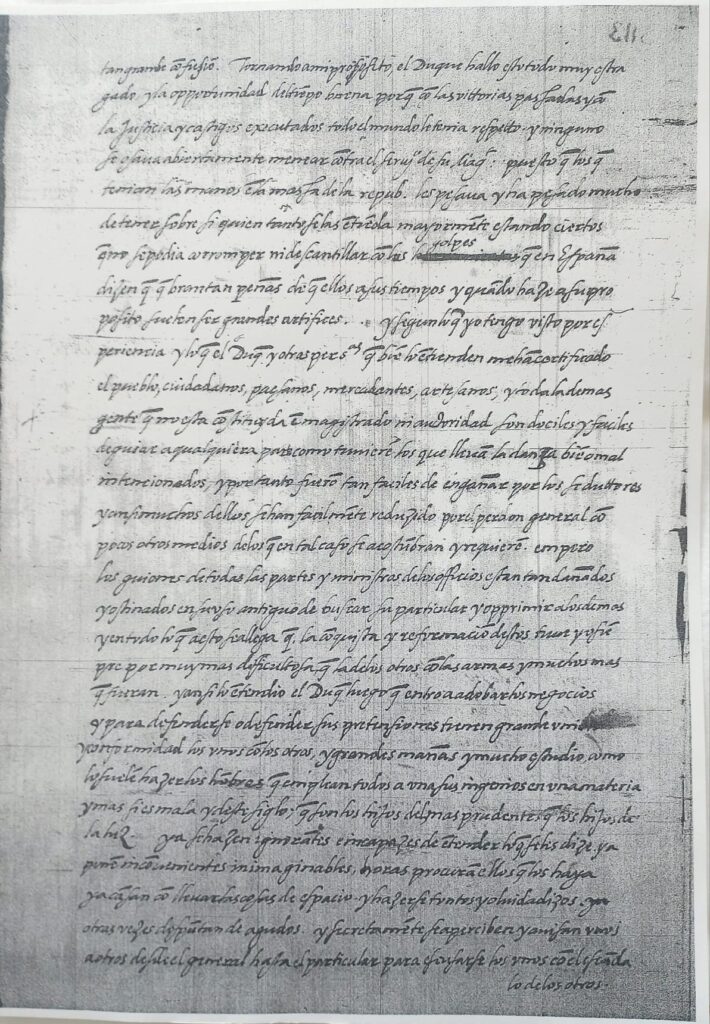 113
tan grande cõfusiõ. Tornando a mi proposito, el Duque hallo esto todo muy estra
gado, y la opportunidad del tiempo buena porq̃ cõ las victorias passadas y cõ
la Justicia y castigos executados todo el mundo le tenia respetto. y ninguno
se osava abiertamente menear cõtra el serui° de su. Mag.d puesto q̃ los q̃
tenian las manos ẽ la massa de la repub. les pesava y ha pesado mucho
de tener sobre si quien tãto se las ẽtiẽda mayormẽte estando ciertos
q̃ no se podia corromper ni descantillar cõ los golpes q̃ en España
disen q̃ q̃brantan peñas de q̃ ellos a sus tiempos y quãdo haze a su pro
posito suelen ser grandes artifices. . y segun lo q̃ yo tengo visto por es
periencia y lo q̃ el Duq̃ y otras pers.as q̃ biẽ lo ẽtienden me hã certificado
el pueblo, ciudadanos, paesanos, mercadantes, artesanos, y toda la demas
gente q̃ no esta cõstituyda ẽ magistrado ni autoridad son dociles y faciles
de guiar a qualquiera parte como tuvierẽ los que lleuã la dança biẽ o mal
intencionados, y por tanto fuerõ tan faciles de engañar por los seduttores
y ansi muchos dellos se han facilmẽte reduzido por el perdon general cõ
pocos otros medios de los q̃ en tal caso se acostũbran y requierẽ. empero
los guiones de todas las partes y ministros de los officios estan tan dañados
y ostinados en su uso antiguo de buscar su particular y opprimir a los demas
y en todo lo q̃ a esto se allega q̃. la cõquista y reformaciõ destos tuve y siẽ
pre por muy mas difficultosa q̃ la de los otros cõ las armas y muchos mas
q̃ fueran. y ansi lo ẽtendio el Duq̃ luego q̃ entro a adobar los negocios
y para defenderse o defender sus pretensiones tienen grande uniõ
y conformidad los unos cõ los otros, y grandes mañas y mucho estudio, como
lo suelẽ hazer los hõbres q̃ emplean todos a una sus ingenios en una materia
y mas si es mala y deste siglo; q̃ son los hijos del mas prudentes q̃ los hijos de
la luz. ya se hazen ignorãtes e incapazes de ẽtender lo q̃ se les dize, ya
ponẽ inconvenientes inimaginables, y oras procurã ellos q̃ los haya
ya cãsan cõ llevar las cosas de espacio y hazerse tontos y olvidadizos. ya
otras vezes disputan de agudos. y secretamẽte se aperciben y avisan unos
a otros desde el general hasta el particular para escusarse los unos cõ el escãda
lo de los otros.